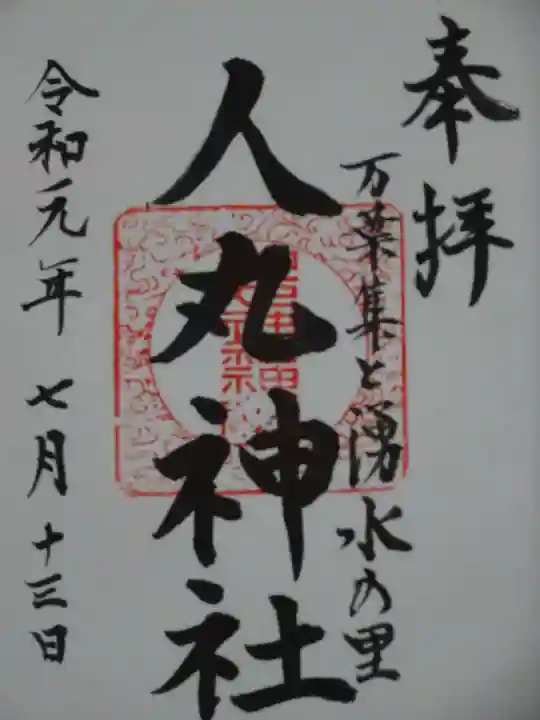 奉拝
万葉集と湧水の里
人丸神社
令和元年七月十三日